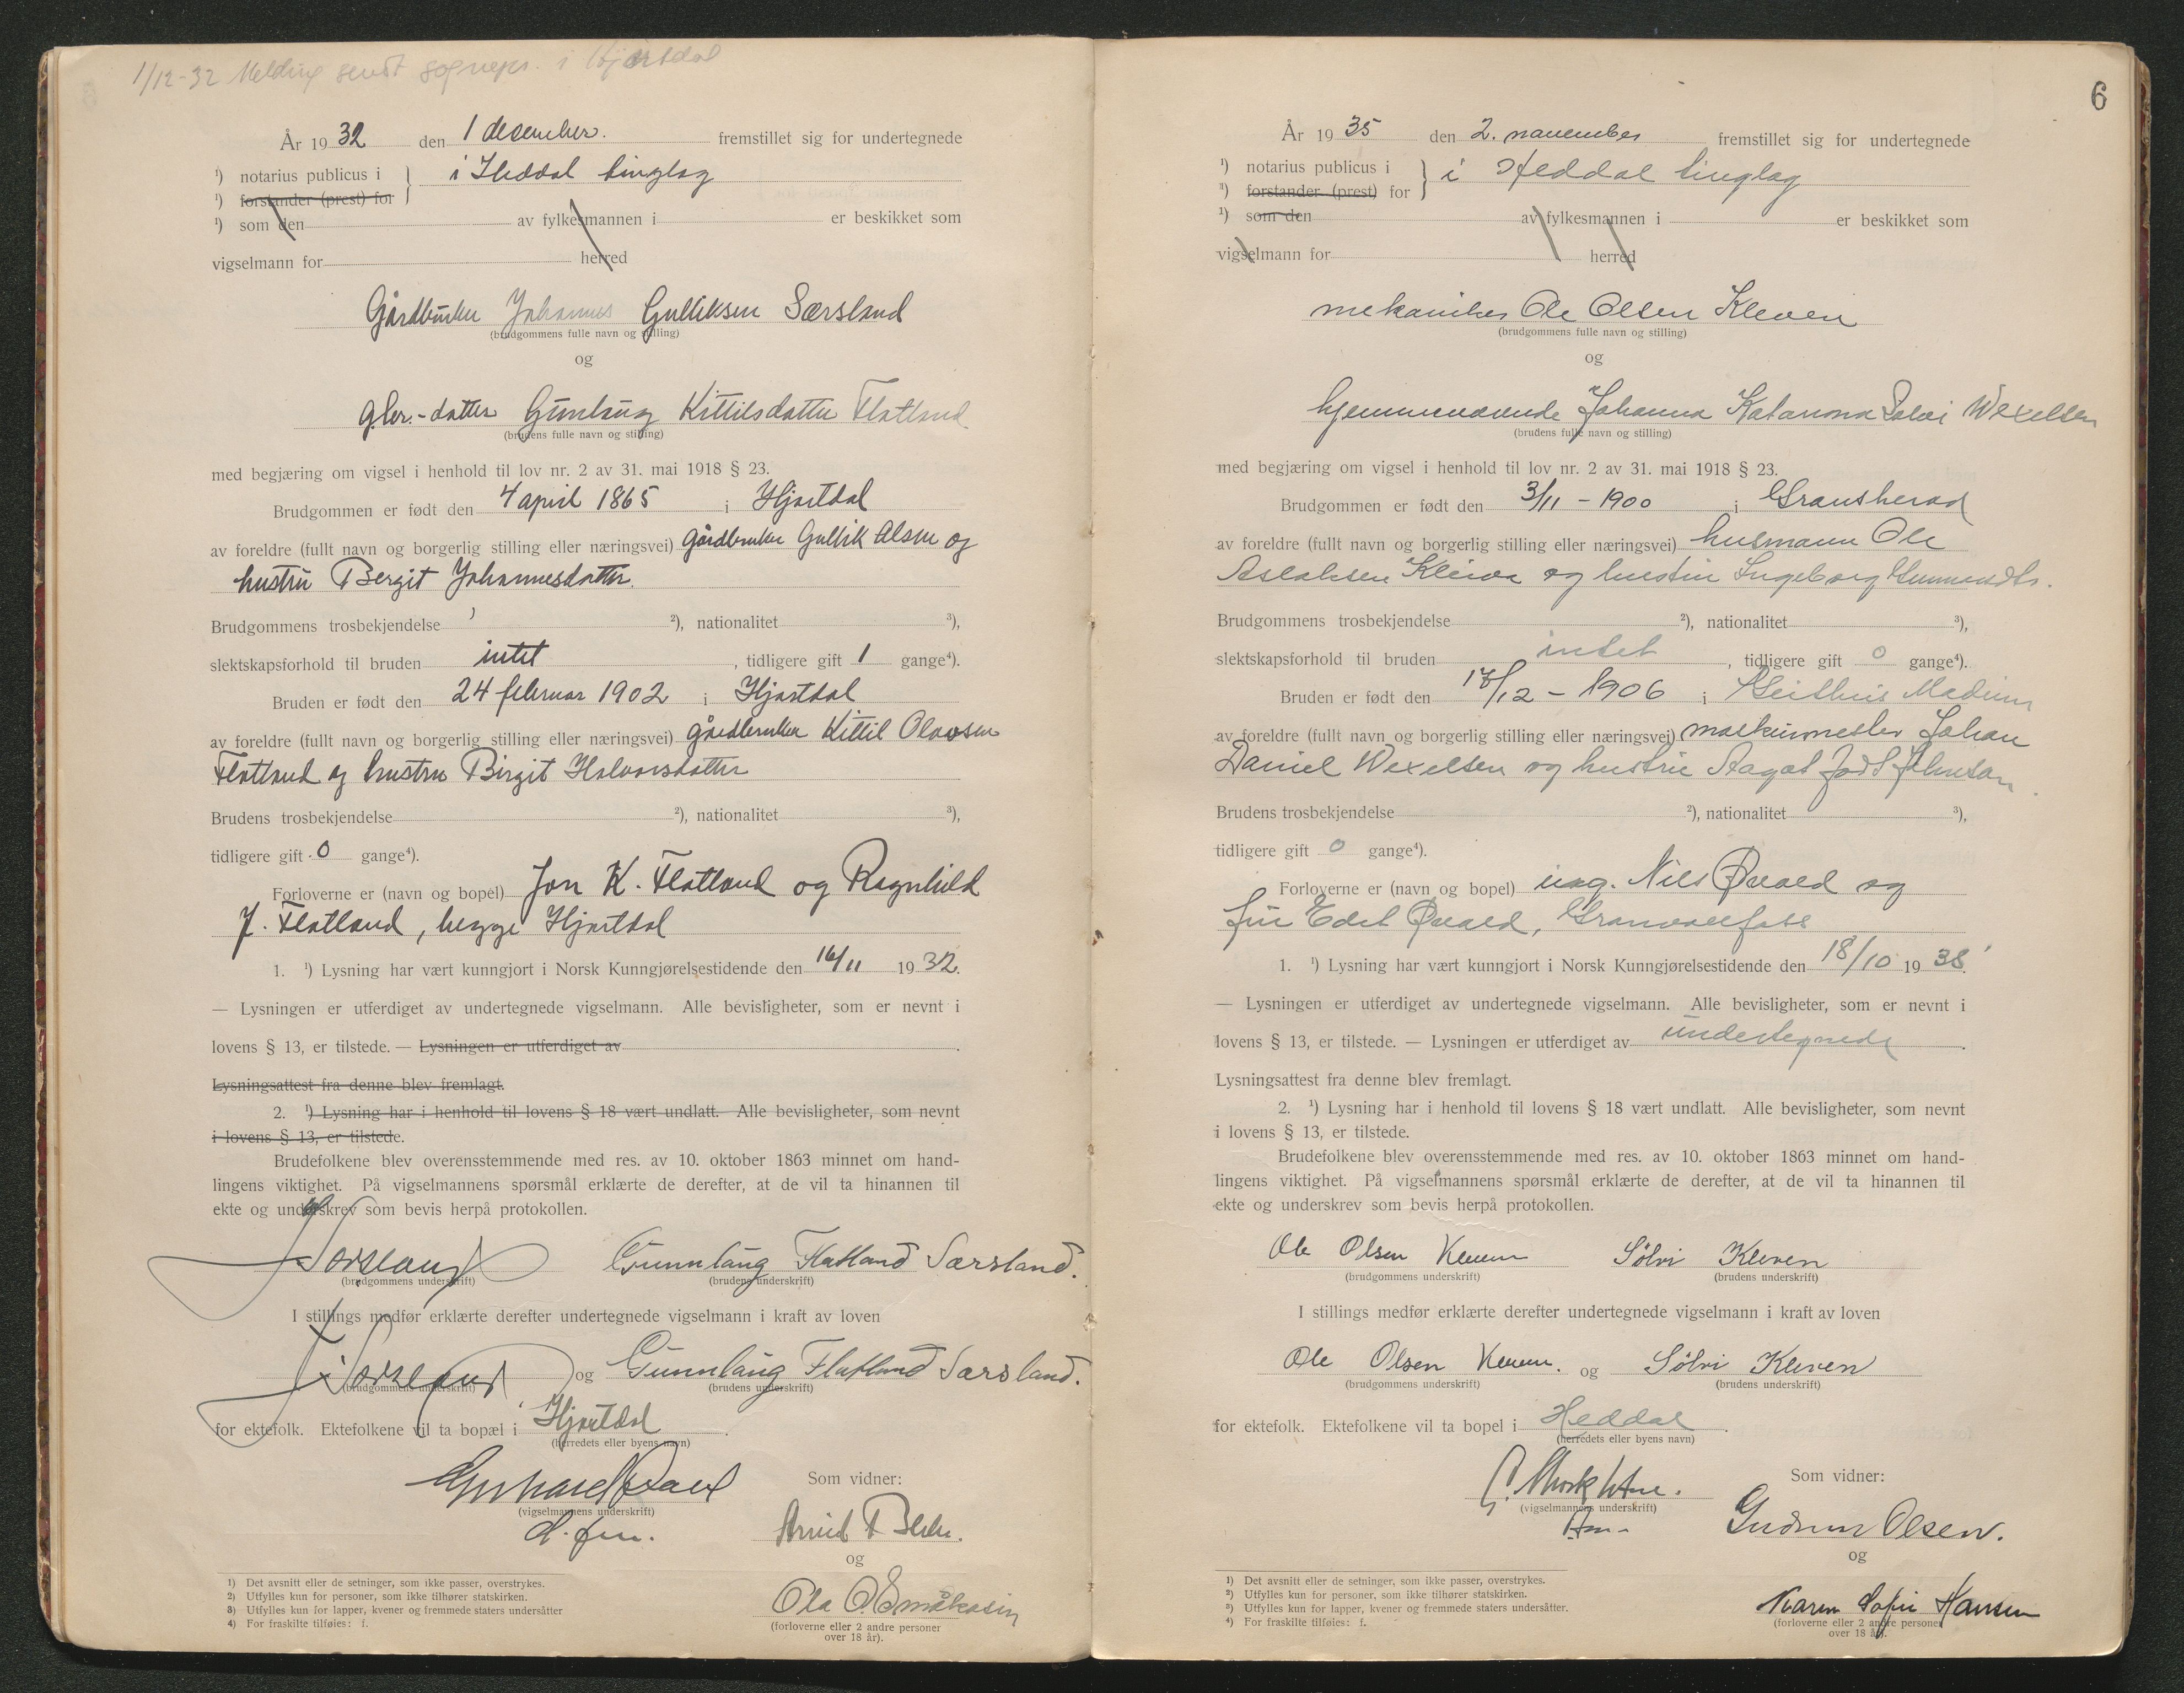 1/12-32 Melding sendt sognepr. i Hjartdal
År 1932 den 1 desember. fremstillet sig for undertegnede
¹) notarius publicus i } i Heddal tinglag
¹) forstander (prest) for
¹) som den av fylkesmannen i er beskikket som
vigselmann for herred
Gårdbruker Johannes Gulliksen Særsland
(brudgommens fulle navn og stilling)
og
gbr.-datter Gunlaug Kittilsdatter Flatland
(brudens fulle navn og stilling)
med begjæring om vigsel i henhold til lov nr. 2 av 31. mai 1918 § 23.
Brudgommen er født den 4 april 1865 i Hjartdal
av foreldre (fullt navn og borgerlig stilling eller næringsvei) gårdbruker Gullik Olsen og
hustru Bergit Johannesdatter.
Brudgommens trosbekjendelse ²), nationalitet ³),
slektskapsforhold til bruden intet, tidligere gift 1 gange⁴).
Bruden er født den 24 februar 1902 i Hjartdal
av foreldre (fullt navn og borgerlig stilling eller næringsvei) gårdbruker Kittil Olavsen
Flatland og hustru Birgit Halvorsdatter
Brudens trosbekjendelse ²), nationalitet ³),
tidligere gift 0 gange⁴).
Forloverne er (navn og bopel) Jon K. Flatland og Ragnhild
J. Flatland, begge Hjartdal
1. ¹) Lysning har vært kunngjort i Norsk Kunngjørelsestidende den 16/11 1932.
— Lysningen er utferdiget av undertegnede vigselmann. Alle bevisligheter, som er nevnt i
lovens § 13, er tilstede. — Lysningen er utferdiget av .
Lysningsattest fra denne blev fremlagt.
2. ¹) Lysning har i henhold til lovens § 18 vært undlatt. Alle bevisligheter, som nevnt
i lovens § 13, er tilstede.
Brudefolkene blev overensstemmende med res. av 10. oktober 1863 minnet om hand-
lingens viktighet. På vigselmannens spørsmål erklærte de derefter, at de vil ta hinannen til
ekte og underskrev som bevis herpå protokollen.
J Særsland Gunnlaug Flatland Særsland.
(brudgommens underskrift) (brudens underskrift)
I stillings medfør erklærte derefter undertegnede vigselmann i kraft av loven
J Særsland og Gunnlaug Flatland Særsland.
(brudgommens underskrift) (brudens underskrift)
for ektefolk. Ektefolkene vil ta bopæl i Hjartdal.
(herredets eller byens navn)
Som vidner:
(vigselmannens underskrift)
d. fm. Arvid
og
Ola O.
(forloverne eller 2 andre personer
over 18 år).
1) Det avsnitt eller de setninger, som ikke passer, overstrykes.
2) Utfylles kun for personer, som ikke tilhører statskirken.
3) Utfylles kun for lapper, kvener og fremmede staters undersåtter
4) For fraskilte tilføies: f.
6
År 1935 den 2. november fremstillet sig for undertegnede
¹) notarius publicus i } i Heddal tinglag
³) forstander (prest) for
¹) som den av fylkesmannen i er beskikket som
vigselmann for herred
mekaniker Ole Olsen Kleven
(brudgommens fulle navn og stilling)
og
hjemmeværende Johanna Katarona Sølvi Wexelsen
(brudens fulle navn og stilling)
med begjæring om vigsel i henhold til lov nr. 2 av 31. mai 1918 § 23.
Brudgommen er født den 3/11 - 1900 i Gransherad
av foreldre (fullt navn og borgerlig stilling eller næringsvei) husmann Ole
Aslaksen Kleiva og hustru Ingeborg Gunnansdtr.
Brudgommens trosbekjendelse ²), nationalitet ³),
slektskapsforhold til bruden intet, tidligere gift 0 gange⁴).
Bruden er født den 18/12 - 1906 i Geithus Modum
av foreldre (fullt navn og borgerlig stilling eller næringsvei) maskinmester Johan
Daniel Wexelsen og hustru Aagot født Johnsen.
Brudens trosbekjendelse ²), nationalitet ³),
tidligere gift 0 gange⁴).
Forloverne er (navn og bopel) ing. Nils Øvald og
fru Edit Øvald, Grønvollfoss
1. ¹) Lysning har vært kunngjort i Norsk Kunngjørelsestidende den 18/10 1935.
— Lysningen er utferdiget av undertegnede vigselmann. Alle bevisligheter, som er nevnt i
lovens § 13, er tilstede. — Lysningen er utferdiget av undertegnede.
Lysningsattest fra denne blev fremlagt.
2. ¹) Lysning har i henhold til lovens § 18 vært undlatt. Alle bevisligheter, som nevnt
i lovens § 13, er tilstede.
Brudefolkene blev overensstemmende med res. av 10. oktober 1863 minnet om hand-
lingens viktighet. På vigselmannens spørsmål erklærte de derefter, at de vil ta hinannen til
ekte og underskrev som bevis herpå protokollen.
Ole Olsen Kleven Sölvi Kleven
(brudgommens underskrift) (brudens underskrift)
I stillings medfør erklærte derefter undertegnede vigselmann i kraft av loven
Ole Olsen Kleven. og Sölvi Kleven
(brudgommens underskrift) (brudens underskrift)
for ektefolk. Ektefolkene vil ta bopel i Heddal.
(herredets eller byens navn)
Som vidner:
(vigselmannens underskrift)
Gudrun Olsen.
og
Karen Sofie Hansen
(forloverne eller 2 andre personer
over 18 år).
¹) Det avsnitt eller de setninger, som ikke passer, overstrykes.
²) Utfylles kun for personer, som ikke tilhører statskirken.
³) Utfylles kun for lapper, kvener og fremmede staters undersåtter.
⁴) For fraskilte tilføies: f.